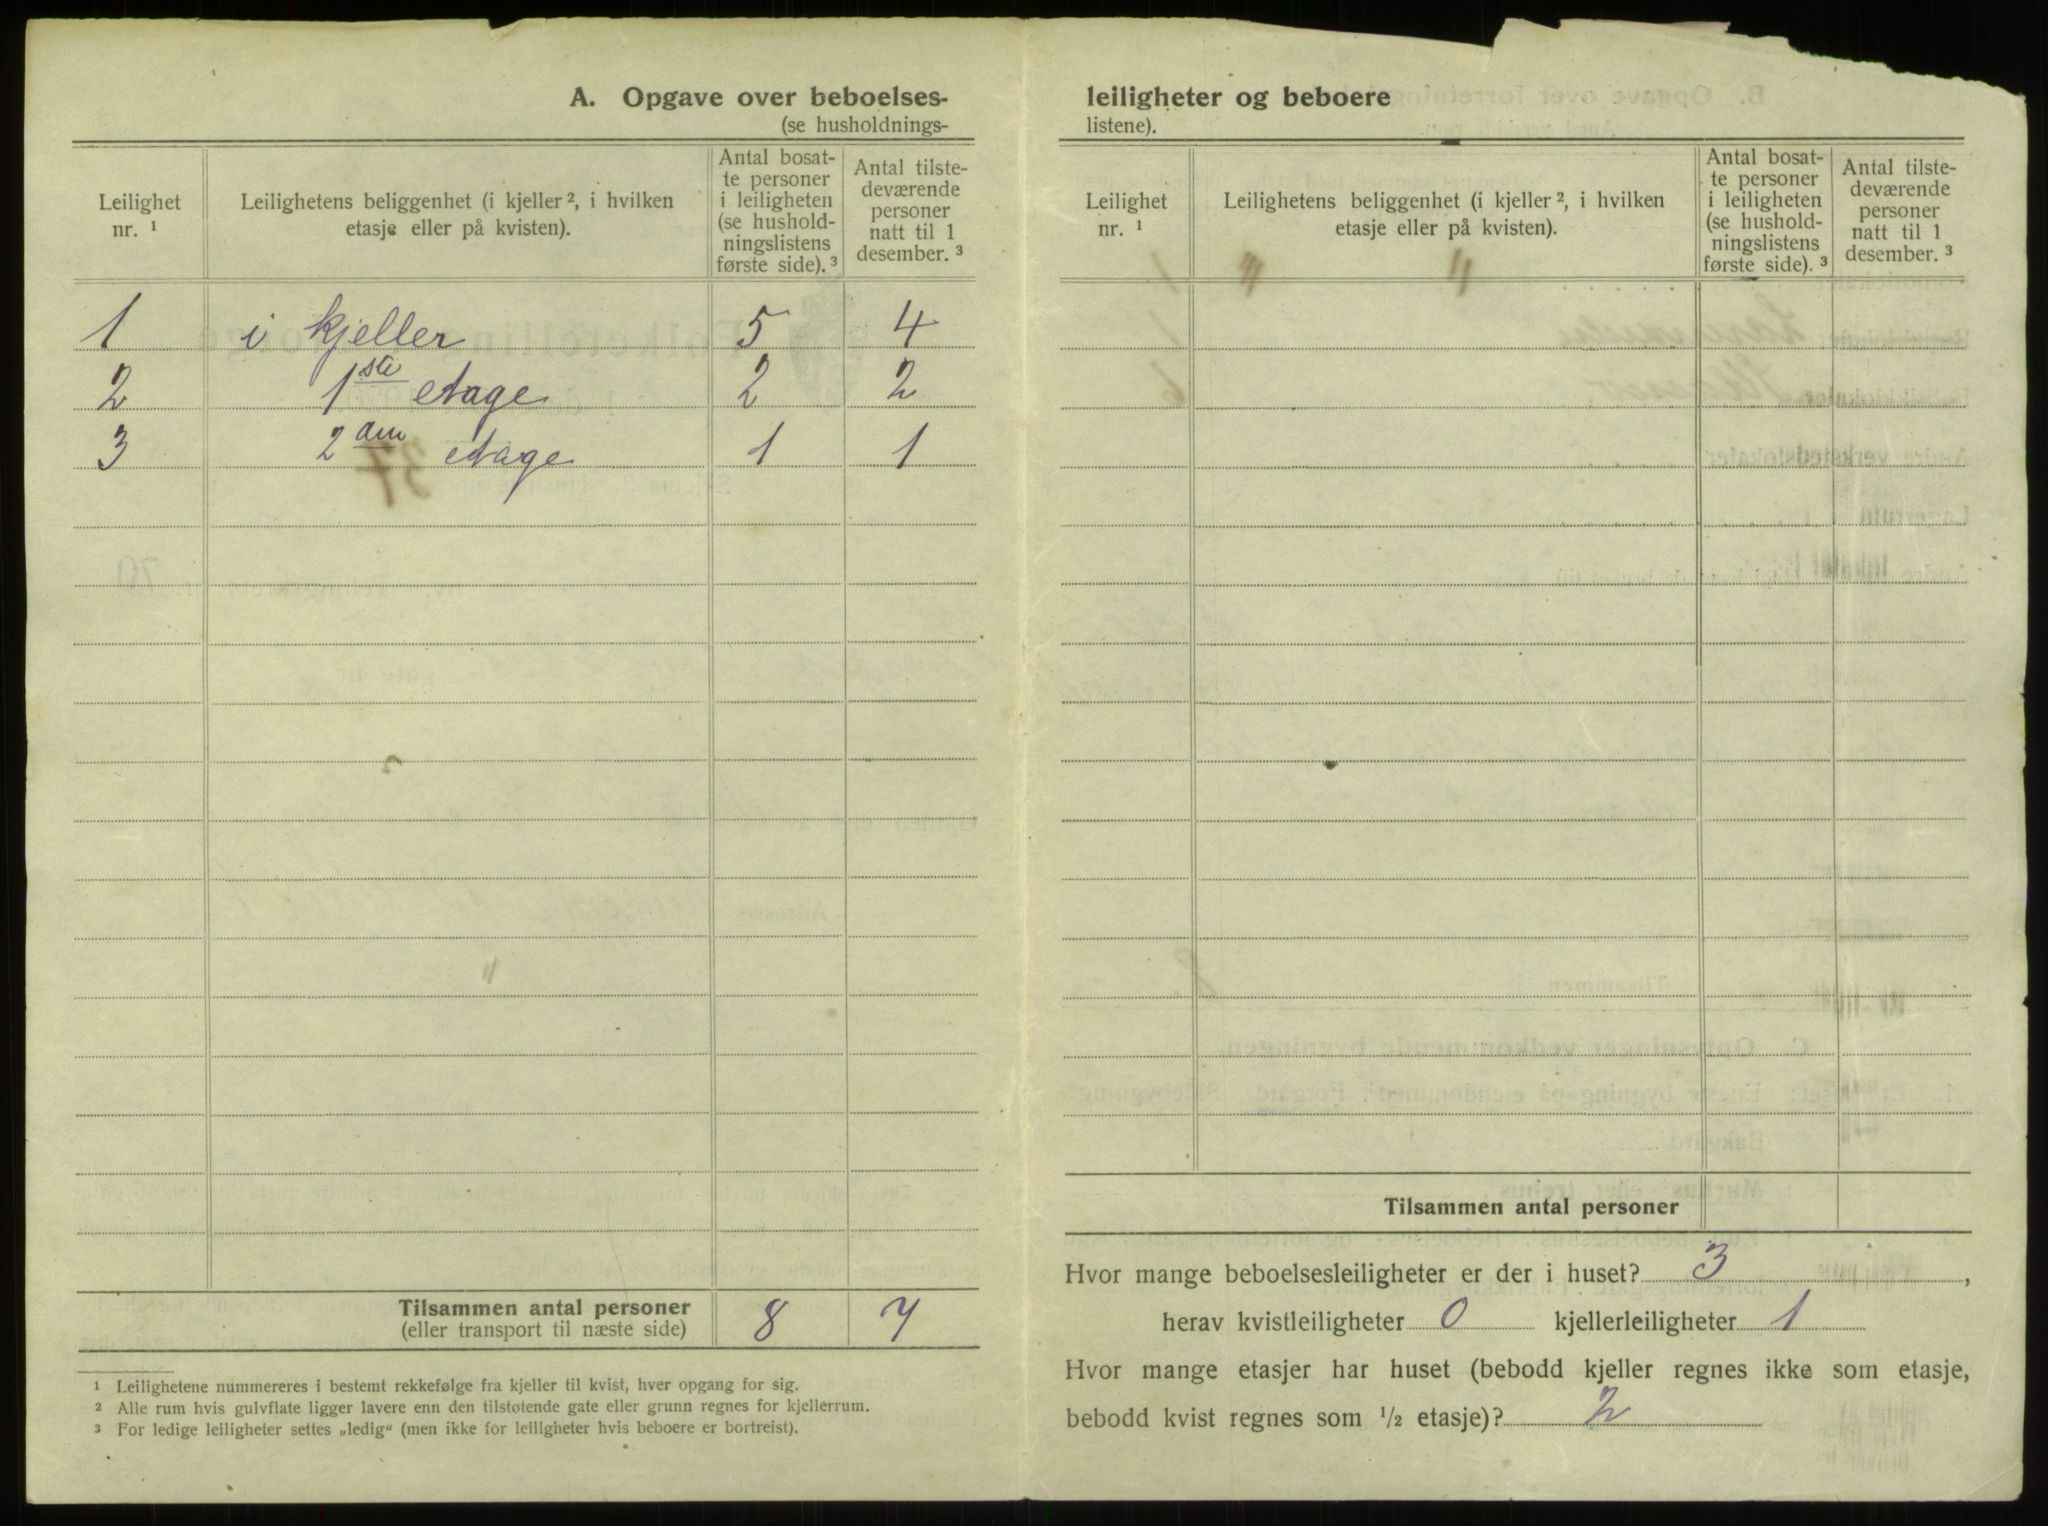 A. Opgave over beboelses-
(se husholdnings-
Leilighet nr. ¹
Leilighetens beliggenhet (i kjeller ², i hvilken etasje eller på kvisten).
Antal bosat-
te personer
i leiligheten
(se hushold-
ningslistens
første side). ³
Antal tilste-
deværende
personer
natt til 1
desember. ³
1 i kjeller 5 4
2 1ste etage 2 2
3 2 etage 1 1
37
Tilsammen antal personer 8 7
(eller transport til næste side)
¹ Leilighetene nummereres i bestemt rekkefølge fra kjeller til kvist, hver opgang for sig.
² Alle rum hvis gulvflate ligger lavere enn den tilstøtende gate eller grunn regnes for kjellerrum.
³ For ledige leiligheter settes „ledig“ (men ikke for leiligheter hvis beboere er bortreist).
leiligheter og beboere
listene).
Leilighet nr. ¹
Leilighetens beliggenhet (i kjeller ², i hvilken etasje eller på kvisten).
Antal bosat-
te personer
i leiligheten
(se hushold-
ningslistens
første side). ³
Antal tilste-
deværende
personer
natt til 1
desember. ³
Tilsammen antal personer
Hvor mange beboelsesleiligheter er der i huset? 3,
herav kvistleiligheter 0 kjellerleiligheter 1
Hvor mange etasjer har huset (bebodd kjeller regnes ikke som etasje,
bebodd kvist regnes som ½ etasje)? 2